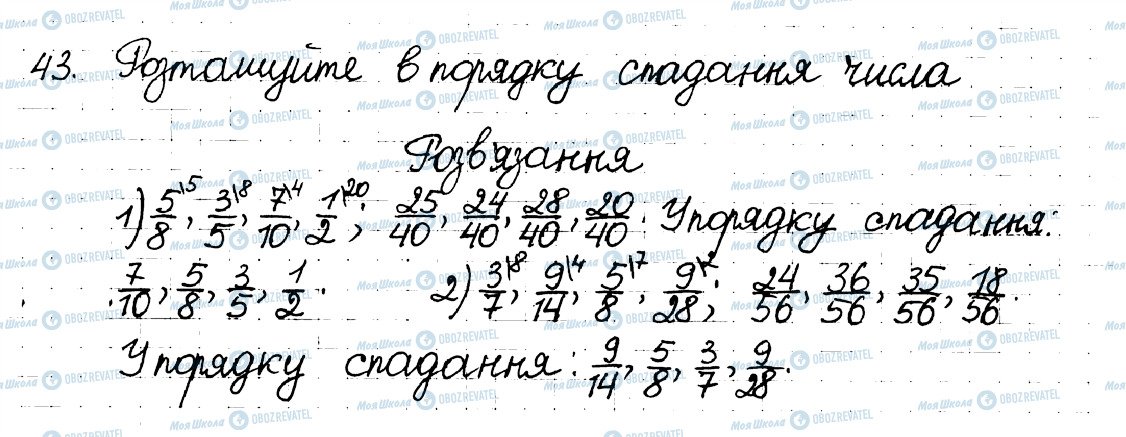 43. Розташуйте в порядку спадання числа
Розв'язання
1) 5/8\5, 3/5\8, 7/10\4, 1/2\20; 25/40, 24/40, 28/40, 20/40. У порядку спадання:
7/10, 5/8, 3/5, 1/2. 2) 3/7\8, 9/14\4, 5/8\7, 9/28\2; 24/56, 36/56, 35/56, 18/56.
У порядку спадання: 9/14, 5/8, 3/7, 9/28.
Моя Школа OBOZREVATEL